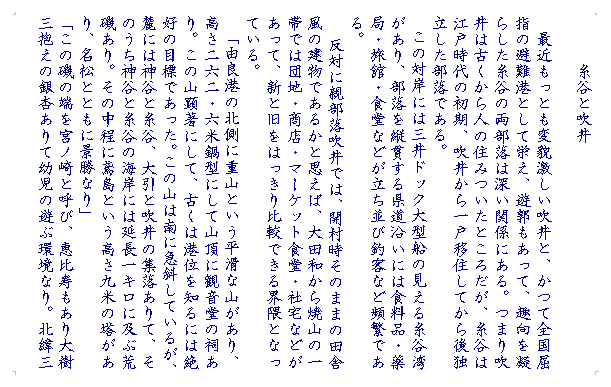 糸谷と吹井
最近もっとも変貌激しい吹井と、かつて全国屈
指の避難港として栄え、遊郭もあって、趣向を凝
らした糸谷の両部落は深い関係にある。つまり吹
井は古くから人の住みついたところだが、糸谷は
江戸時代の初期、吹井から一戸移住してから後独
立した部落である。
この対岸には三井ドック大型船の見える糸谷湾
があり、部落を縦貫する県道沿いには食料品・薬
局・旅館・食堂などが立ち並び釣客など頻繁であ
る。
反対に親部落吹井では、開村時そのままの田舎
風の建物であるかと思えば、大田和から焼山の一
帯では団地・商店・マーケット食堂・社宅などが
あって、新と旧をはっきり比較できる界隈となっ
ている。
「由良港の北側に重山という平滑な山があり、
高さ二六二・六米鍋型にして山頂に観音堂の祠あ
り。この山顕著にして、古くは港位を知るには絶
好の目標であった。この山は南に急斜しているが、
麓には神谷と糸谷、大引と吹井の集落ありて、そ
のうち神谷と糸谷の海岸には延長一キロに及ぶ荒
磯あり。その中程に蔦島という高さ九米の塔があ
り、名松とともに景勝なり」
「この磯の端を宮ノ崎と呼び、恵比寿もあり大樹
三抱えの銀杏ありて幼児の遊ぶ環境なり。北緯三